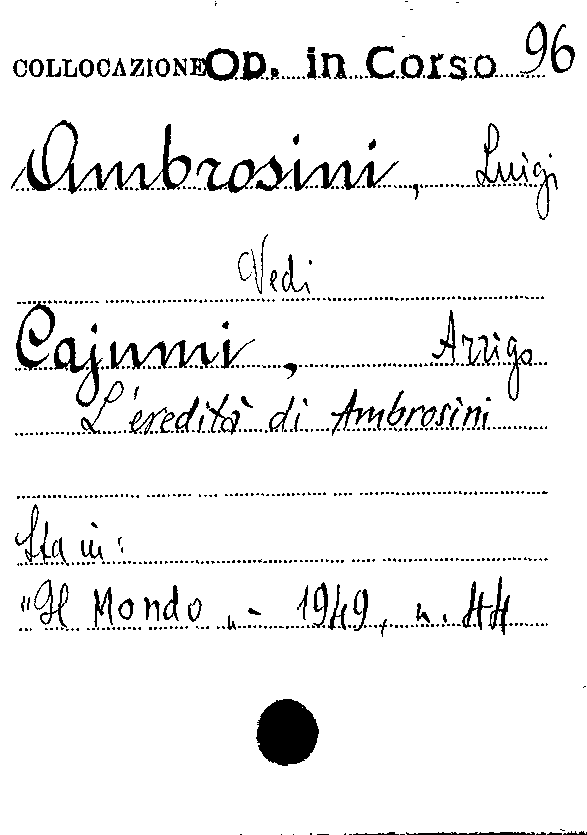 COLLOCAZIONE Op. in Corso 96
Ambrosini, Luigi
Vedi
Cajumi, Arrigo
L'eredità di Ambrosini
Sta in:
"Il Mondo„ - 1949, n. 44